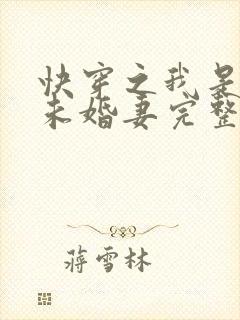 快穿之我是
未婚妻完整
蒋雪林